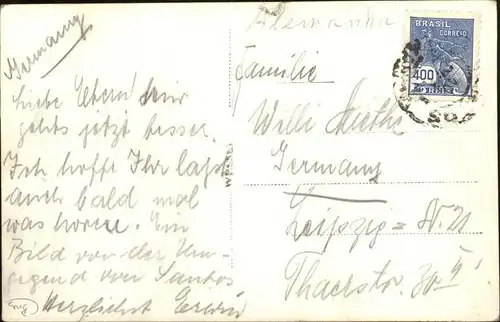 Germany
Liebe Eltern! Mir
gehts jetzt besser.
Ich hoffe Ihr lasst
auch bald mal
was hören. Ein
Bild von der Um-
gegend von Santos
Herzlichst Erwin
Alemanha
Familie
Willi
Germany
Leipzig = N. 21
Thaerstr. 30 II
BRASIL
CORREIO
400
REIS